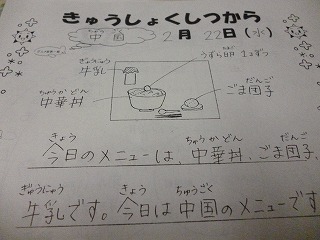 きゅうしょくしつから
ちゅうごく
中国
2月22日(水)
うずら卵 1こずつ
たまご
ぎゅうにゅう
牛乳
ちゅうかどん
中華丼
だんご
ごま団子
きょう ちゅうかどん だんご
今日のメニューは、中華丼、ごま団子、
ぎゅうにゅう きょう ちゅうごく
牛乳です。今日は中国のメニューです